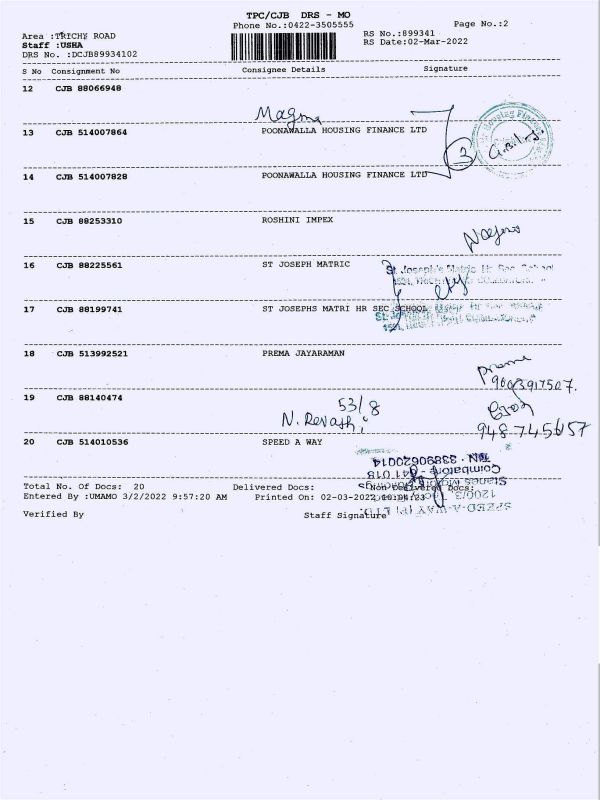 TPC/CJB DRS - MO
Phone No.:0422-3505555
Page No.:2
Area :TRICHY ROAD
RS No.:899341
Staff :USHA
RS Date:02-Mar-2022
DRS No. :DCJB89934102
S No Consignment No Consignee Details Signature
12 CJB 88066948
Magma
13 CJB 514007864 POONAWALLA HOUSING FINANCE LTD
3
14 CJB 514007828 POONAWALLA HOUSING FINANCE LTD
15 CJB 88253310 ROSHINI IMPEX
16 CJB 88225561 ST JOSEPH MATRIC
St Joseph's Matric Hr Sec School
17 CJB 88199741 ST JOSEPHS MATRI HR SEC SCHOOL
18 CJB 513992521 PREMA JAYARAMAN
19 CJB 88140474
53/8
N. Revathi
20 CJB 514010536 SPEED A WAY
Total No. Of Docs: 20 Delivered Docs: Non Delivered Docs:
Entered By :UMAMO 3/2/2022 9:57:20 AM Printed On: 02-03-2022
Verified By Staff Signature
SPEED-A-WAY (P) LTD.
Coimbatore - 641 018